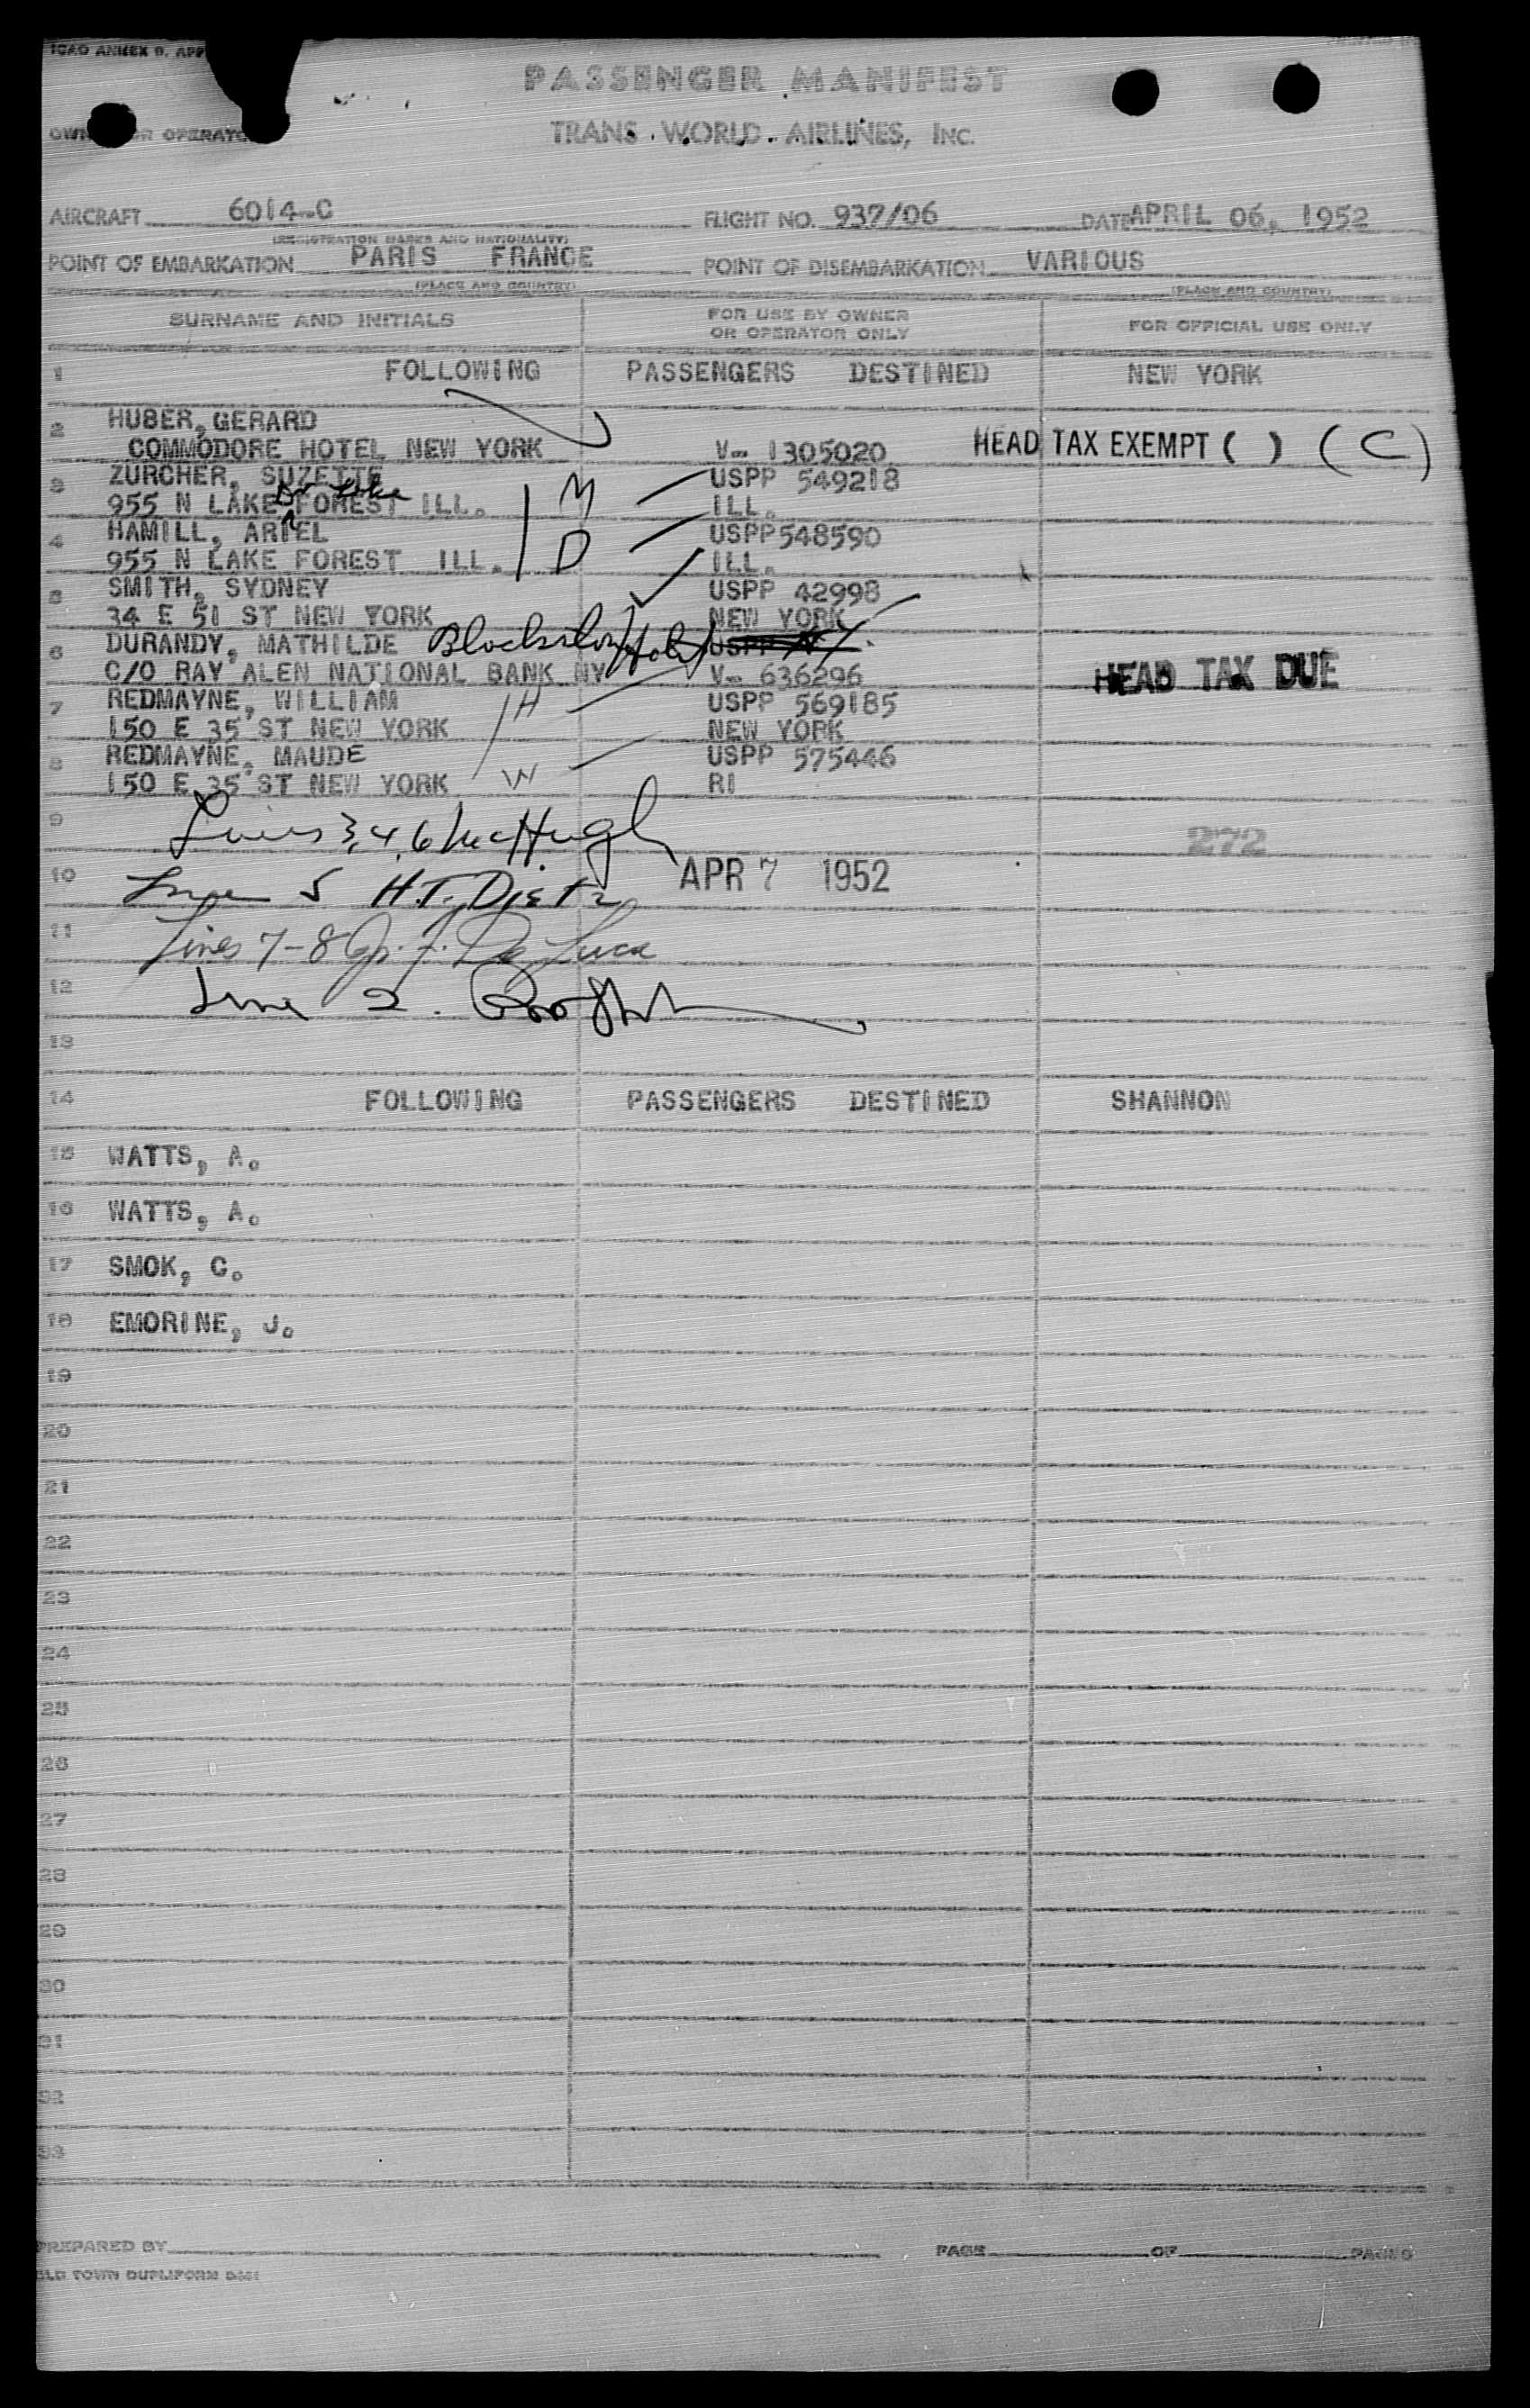 ICAO ANNEX 9, APP
PASSENGER MANIFEST
OWNER OR OPERATOR
TRANS WORLD AIRLINES, INC.
AIRCRAFT 6014-C FLIGHT NO. 937/06 DATE APRIL 06, 1952
(REGISTRATION MARKS AND NATIONALITY)
POINT OF EMBARKATION PARIS FRANCE POINT OF DISEMBARKATION VARIOUS
(PLACE AND COUNTRY) (PLACE AND COUNTRY)
SURNAME AND INITIALS FOR USE BY OWNER OR OPERATOR ONLY FOR OFFICIAL USE ONLY
1 FOLLOWING PASSENGERS DESTINED NEW YORK
2 HUBER, GERARD
COMMODORE HOTEL NEW YORK V- 1305020 HEAD TAX EXEMPT ( ) (C)
3 ZURCHER, SUZETTE USPP 549218
955 N LAKE FOREST ILL. M ILL.
4 HAMILL, ARIEL USPP 548590
955 N LAKE FOREST ILL. D ILL.
5 SMITH, SYDNEY USPP 42998
34 E 51 ST NEW YORK NEW YORK
6 DURANDY, MATHILDE Hotel USPP NY
C/O RAY ALEN NATIONAL BANK NY V- 636296 HEAD TAX DUE
7 REDMAYNE, WILLIAM H USPP 569185
150 E 35 ST NEW YORK NEW YORK
8 REDMAYNE, MAUDE USPP 575446
150 E 35 ST NEW YORK W RI
9 Lines 3,4,6 McHugh 272
10 Line 5 H.T. Dietz APR 7 1952
11 Lines 7-8 J. De Luca
12 Line 2.
13
14 FOLLOWING PASSENGERS DESTINED SHANNON
15 WATTS, A.
16 WATTS, A.
17 SMOK, C.
18 EMORINE, J.
19
20
21
22
23
24
25
26
27
28
29
30
31
32
33
PREPARED BY PAGE OF PAGES
OLD TOWN DUPLIFORM